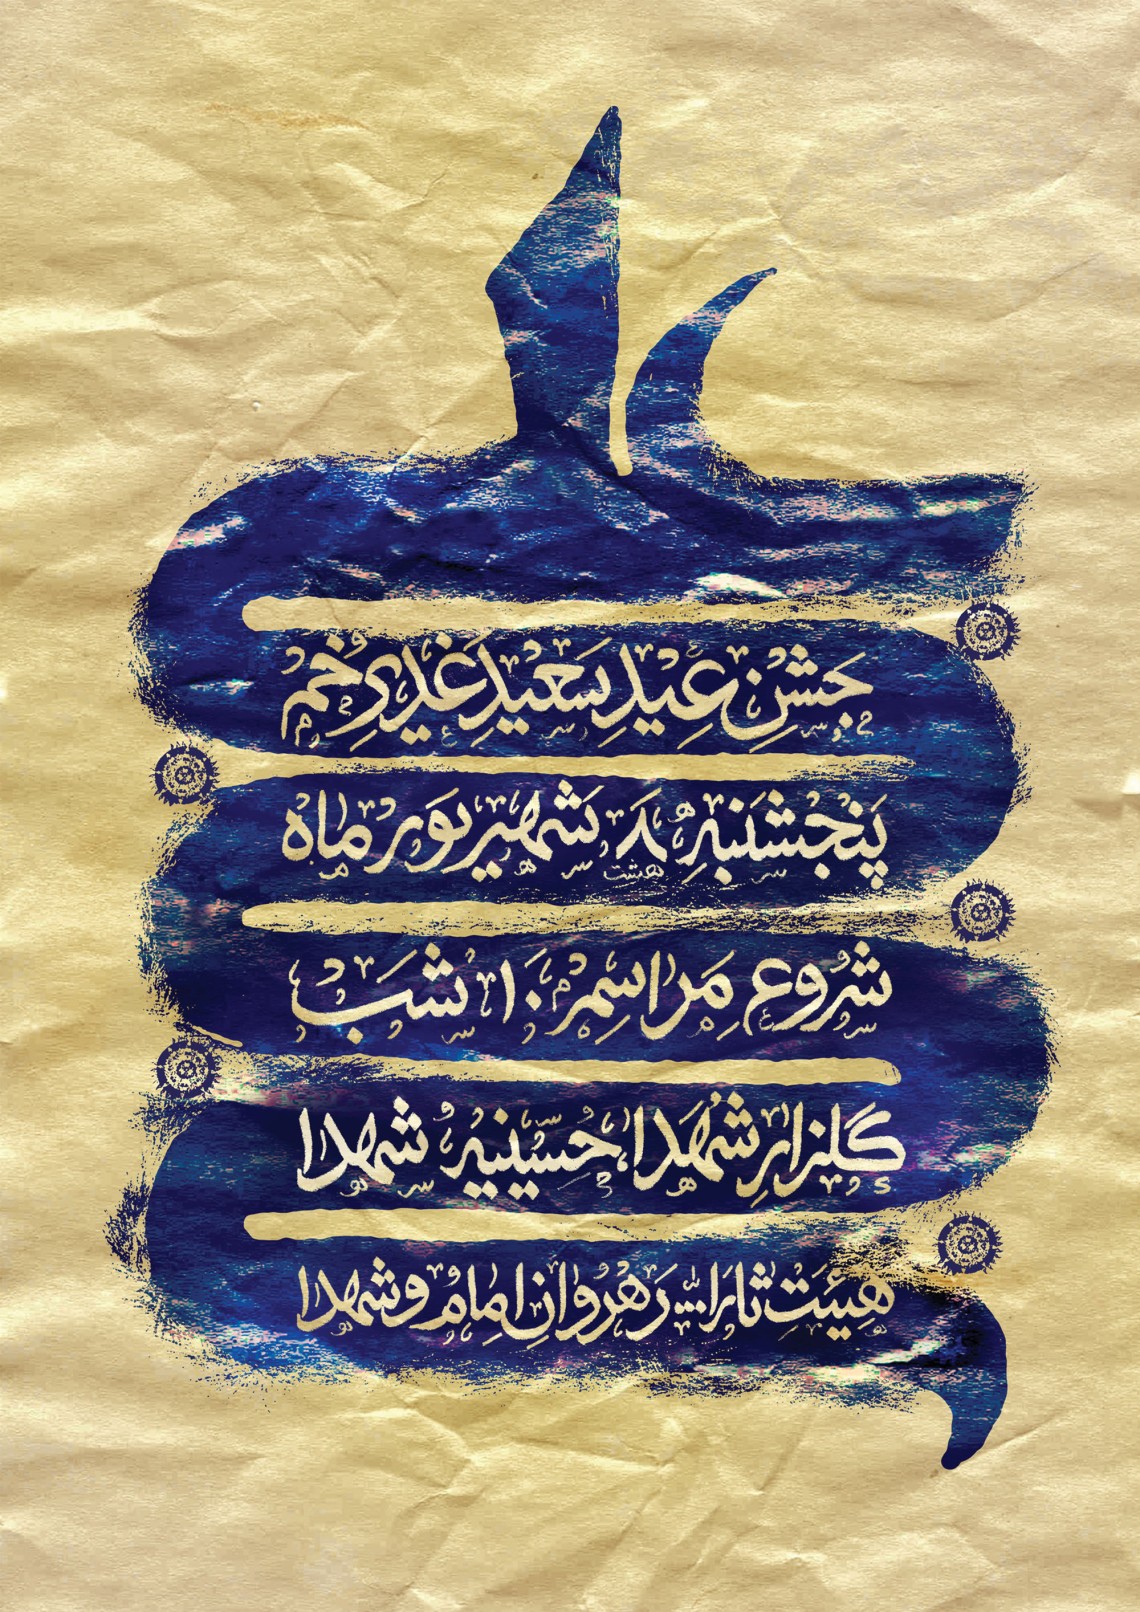 جَشْنِ عِیْدِ سَعْیدِ غَدیرِ خُم
پَنْجْشَنبهِ ۸ شَهْریوَر ماه
هشت
شُروع مَراسِم ۱۰ شَب
گلزارِ شُهَدا، حُسِّینیهِ شهدا
هِیئَتْ ثاراَ... رَهْرُوانِ امامُ و شهدا